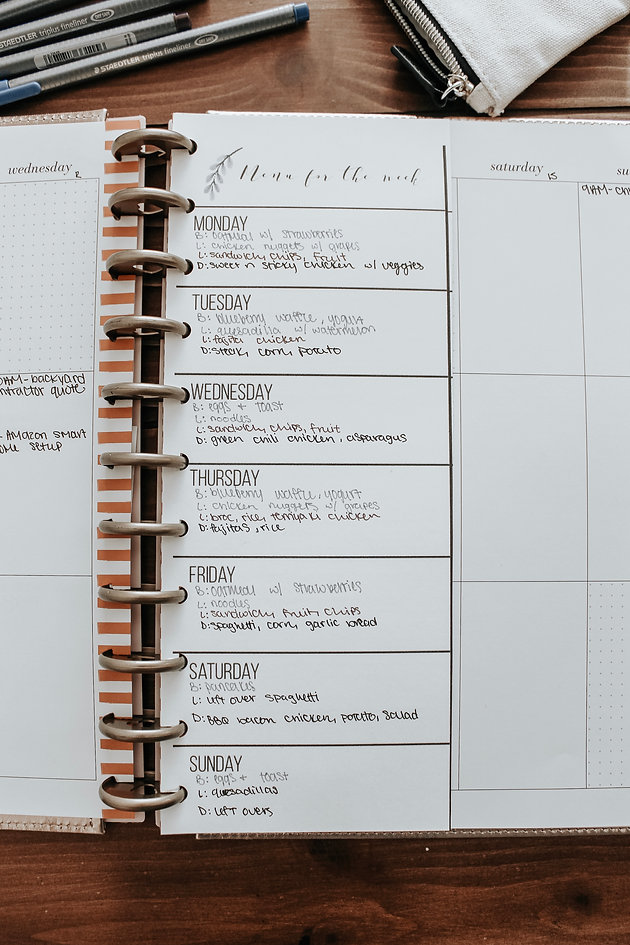 STAEDTLER triplus fineliner
STAEDTLER
STAEDTLER triplus fineliner
wednesday
saturday
15
su
9AM-
AM-backyard
ntractor quote
-Amazon smart
ome setup
Menu for the week
MONDAY
B: oatmeal w/ strawberries
L: chicken nuggets w/ grapes
L: sandwich, chips, fruit
D: sweet n sticky chicken w/ veggies
TUESDAY
B: blueberry waffle, yogurt
L: quesadilla w/ watermelon
L: fajita chicken
D: steak, corn, potato
WEDNESDAY
B: eggs + toast
L: noodles
L: sandwich, chips, fruit
D: green chili chicken, asparagus
THURSDAY
B: blueberry waffle, yogurt
L: chicken nuggets w/ grapes
L: broc, rice, teriyaki chicken
D: fajitas, rice
FRIDAY
B: oatmeal w/ strawberries
L: noodles
L: sandwich, fruit, chips
D: spaghetti, corn, garlic bread
SATURDAY
B: pancakes
L: left over spaghetti
D: BBQ bacon chicken, potato, salad
SUNDAY
B: eggs + toast
L: quesadillas
D: left overs